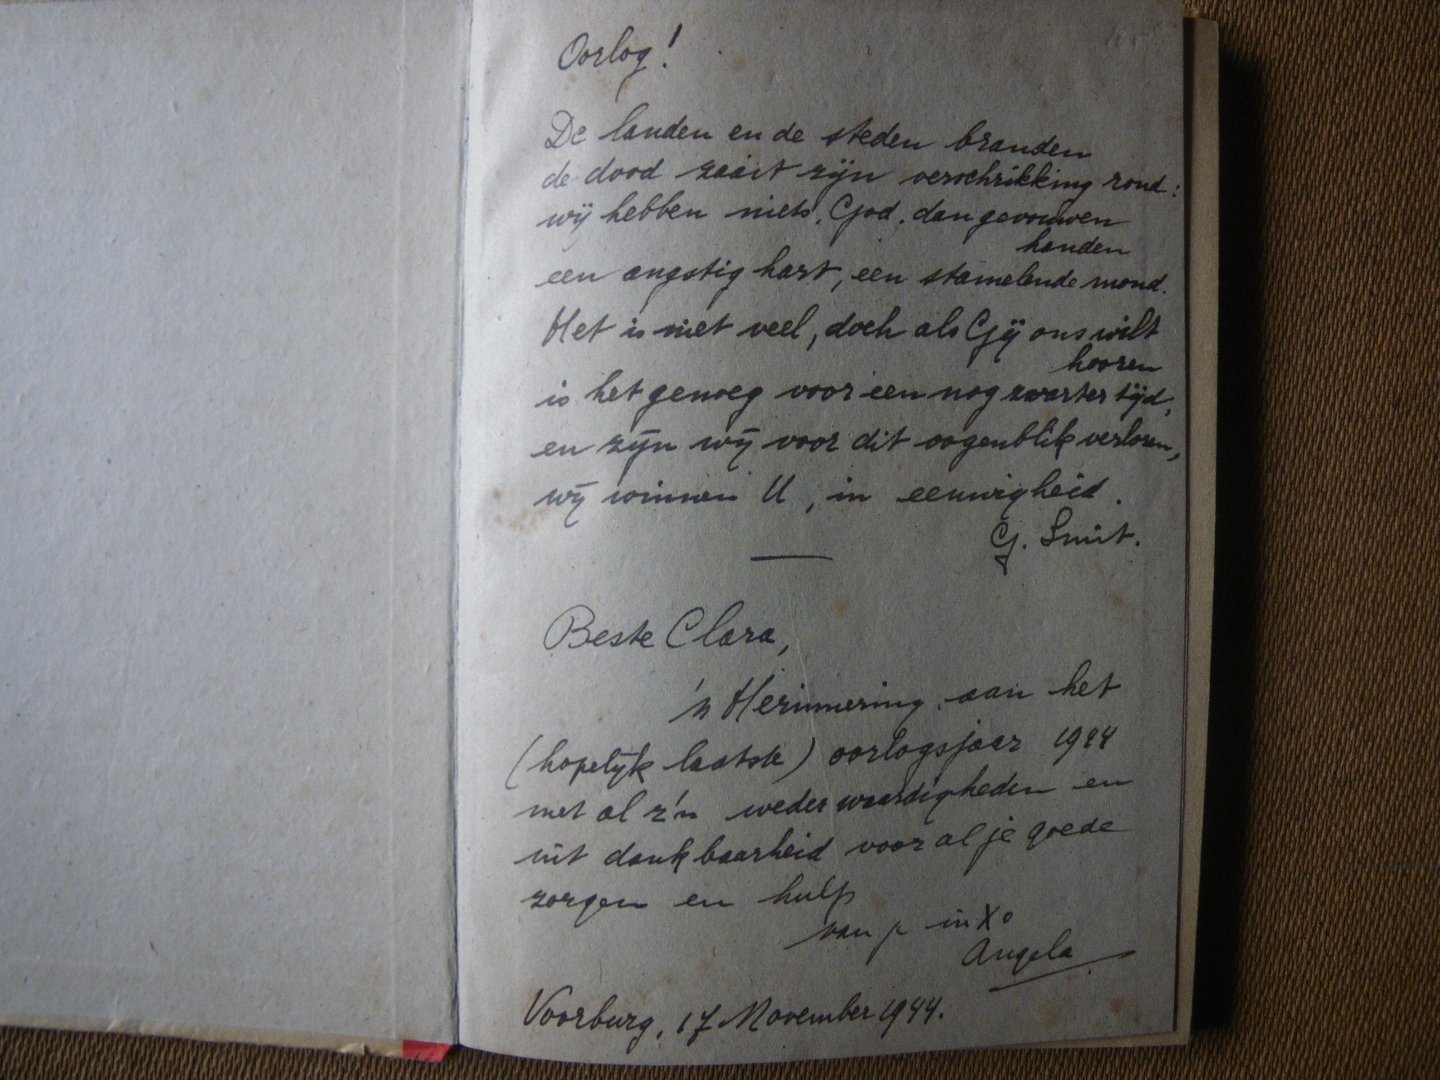 Oorlog!
De landen en de steden branden
de dood zaait zijn verschrikking rond:
wij hebben niets, God, dan gevouwen
handen
een angstig hart, een stamelende mond.
Het is niet veel, doch als Gij ons wilt
hooren
is het genoeg voor een nog zwarter tijd,
en zijn wij voor dit oogenblik verloren,
wij winnen U, in eeuwigheid.
G. Smit.
Beste Clara,
'n Herinnering aan het
(hopelijk laatste) oorlogsjaar 1944
met al z'n wederwaardigheden en
uit dankbaarheid voor al je goede
zorgen en hulp
van je in Xo
Angela
Voorburg, 17 November 1944.